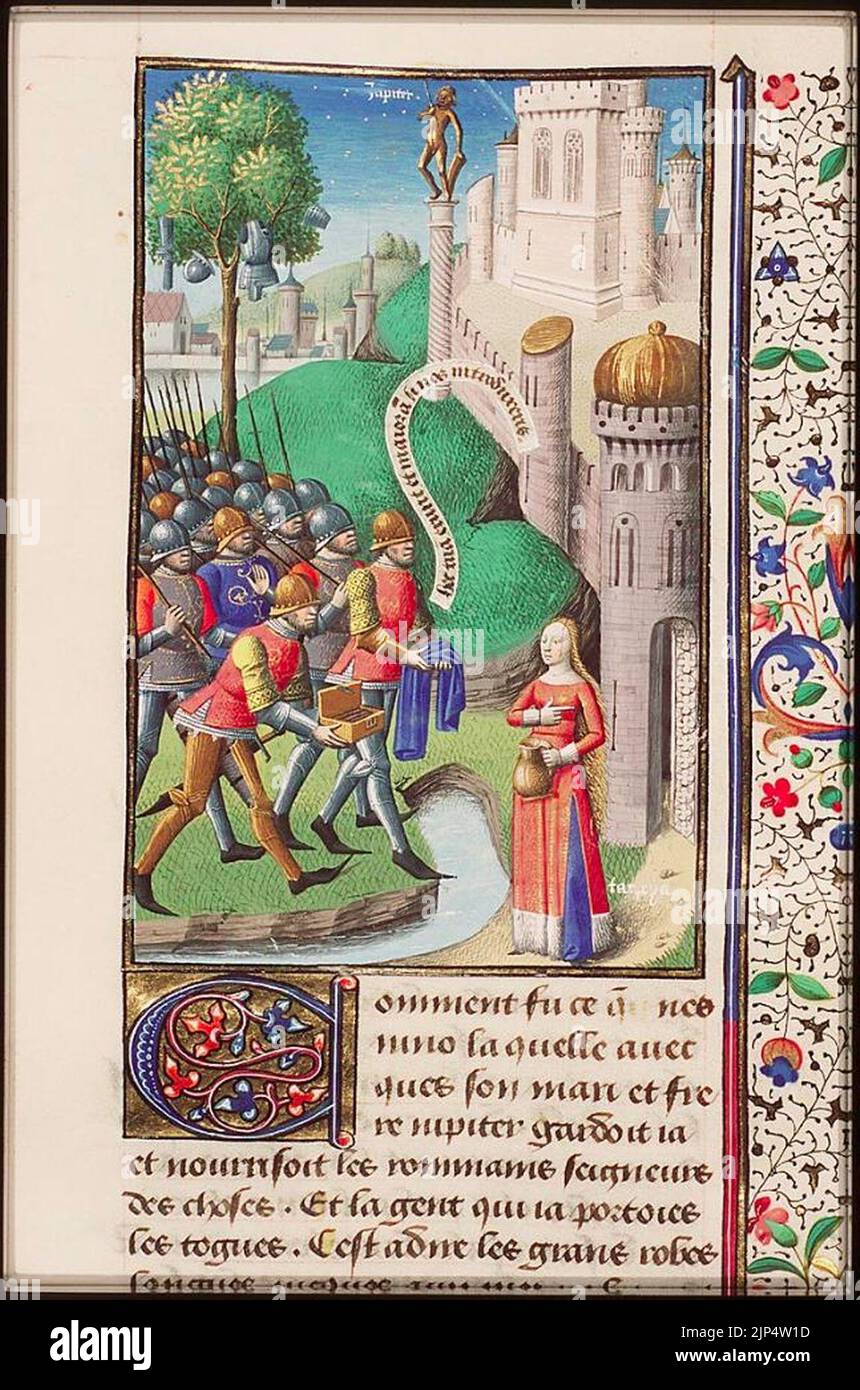 Jupiter.
hec via erunt et maiora si nos introduxeris
tarpya
Comment fu ce q̄ nes
mino la quelle auec
ques son mari et fre
re iupiter gardoit ia
et nourrissoit les rommains seigneurs
des choses. Et la gent qui ia portoies
les togues. Cest adire les grans robes
alamy
Image ID: 2JP4W1D
www.alamy.com